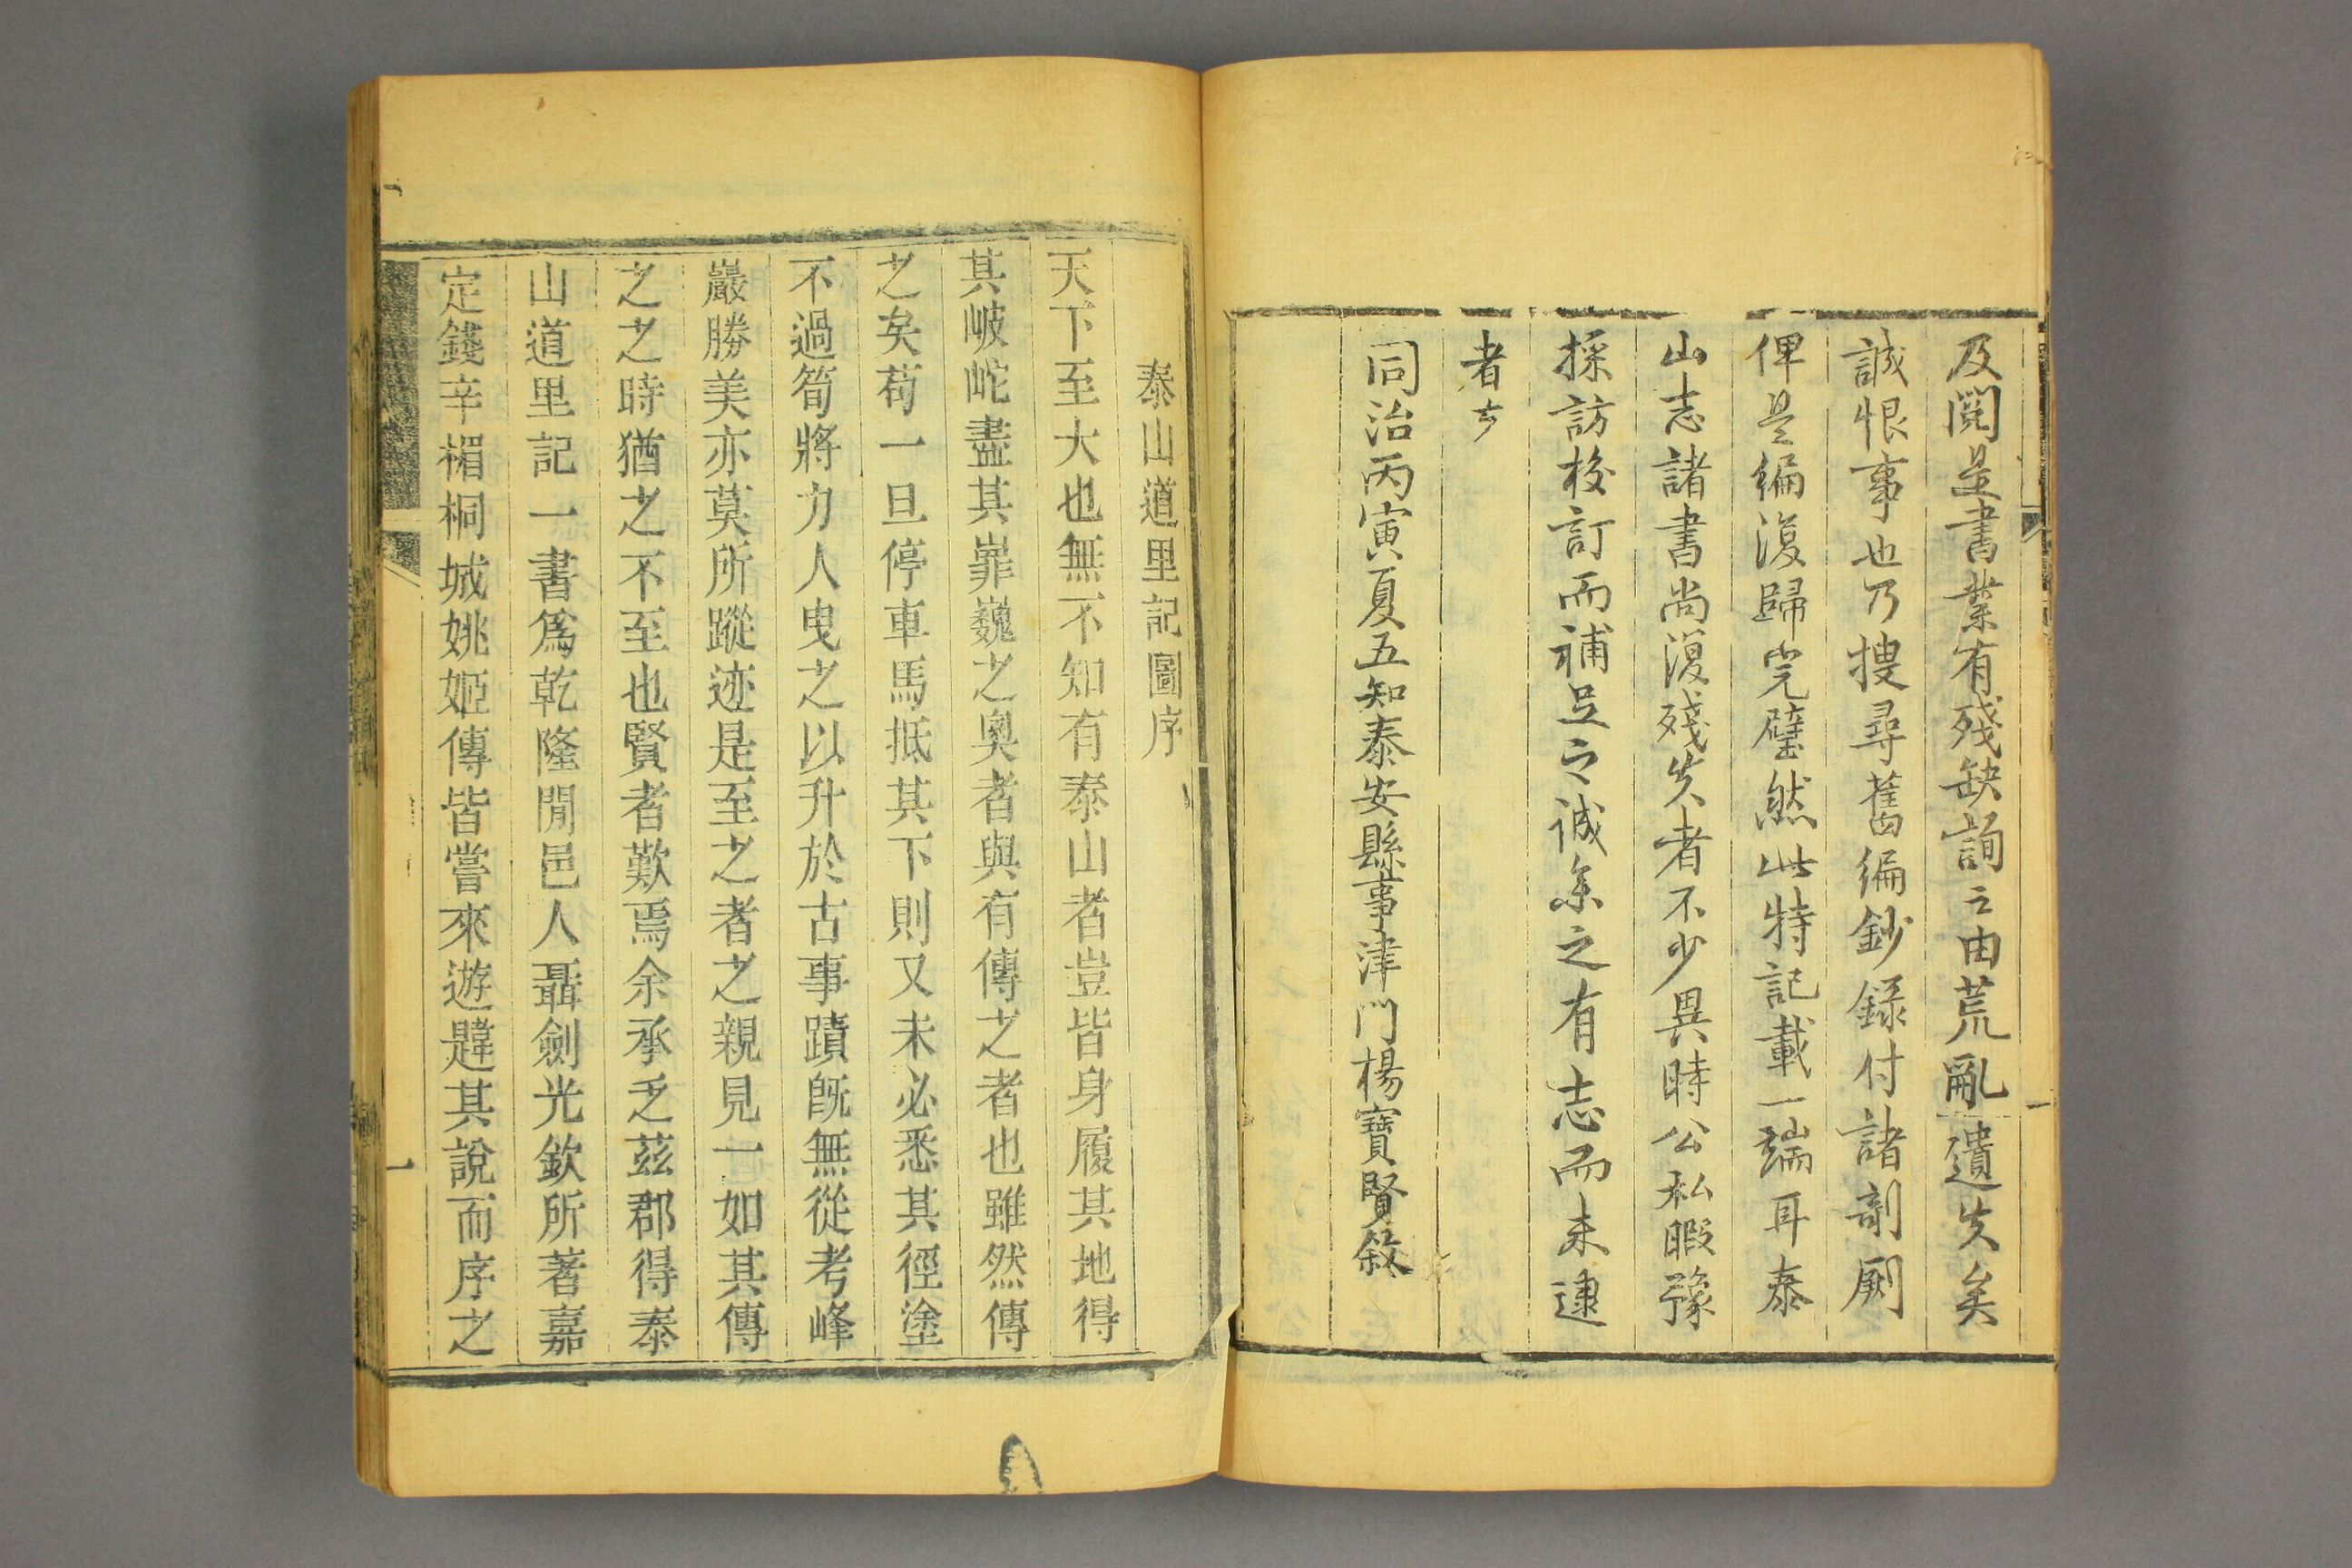 及閱是書業有殘缺詢之由荒亂遺失矣
誠恨事也乃搜尋舊編鈔錄付諸剞劂
俾是編復歸完璧然此特記載一端耳泰
山志諸書尚復殘失者不少異時公私暇豫
採訪校訂而補足之誠余之有志而未逮
者也
同治丙寅夏五知泰安縣事津門楊寶賢敘
泰山道里記圖序
天下至大也無不知有泰山者豈皆身履其地得
其岥岮盡其嶵巍之奧者與有傳之者也雖然傳
之矣苟一旦停車馬抵其下則又未必悉其徑塗
不過筍將力人曳之以升於古事蹟旣無從考峰
巖勝美亦莫所蹤迹是至之者之親見一如其傳
之之時猶之不至也賢者歎焉余承乏茲郡得泰
山道里記一書爲乾隆閒邑人聶劍光欽所著嘉
定錢辛楣桐城姚姬傳皆嘗來遊韙其說而序之
一